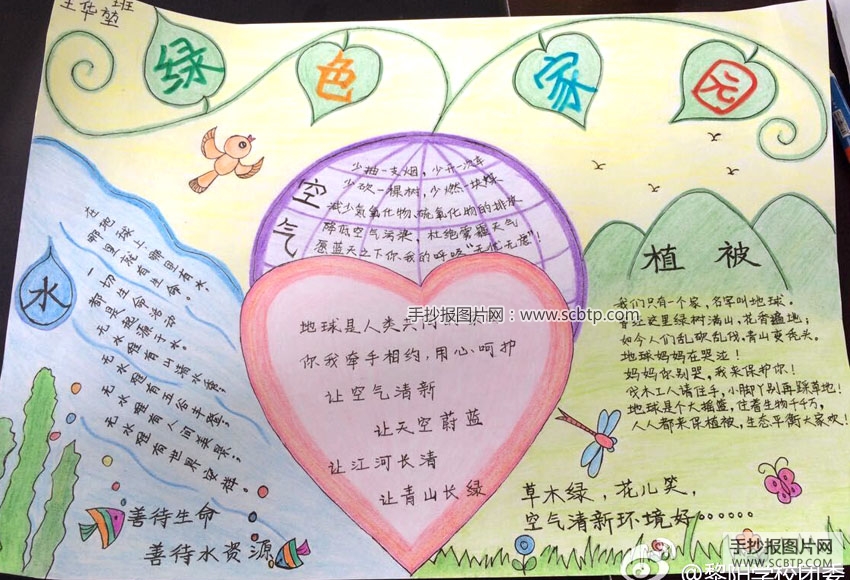 班
王华堃
绿色家园
空气
少抽一支烟，少开一次车
少砍一棵树，少燃一块煤
减少氮氧化物、硫氧化物的排放
降低空气污染，杜绝雾霾天气
愿蓝天之下你我的呼吸“无忧无虑”！
水
在地球上，哪里有水，
哪里就有生命。
一切生命活动
都是起源于水。
无水哪有山清水秀，
无水哪有五谷丰登，
无水哪有人间美景，
无水哪有世界安祥。
善待生命
善待水资源
手抄报图片网：www.scbtp.com
地球是人类共同
你我牵手相约，用心呵护
让空气清新
让天空蔚蓝
让江河长清
让青山长绿
植被
我们只有一个家，名字叫地球。
曾经这里绿树满山，花香遍地；
如今人们乱砍乱伐，青山变秃头。
地球妈妈在哭泣！
妈妈你别哭，我来保护你！
伐木工人请住手，小脚丫别再踩草地！
地球是个大摇篮，住着生物千千万，
人人都来保植被，生态平衡大家欢！
草木绿，花儿笑，
空气清新环境好……
手抄报图片网
WWW.SCBTP.COM
@黎阳学校团委